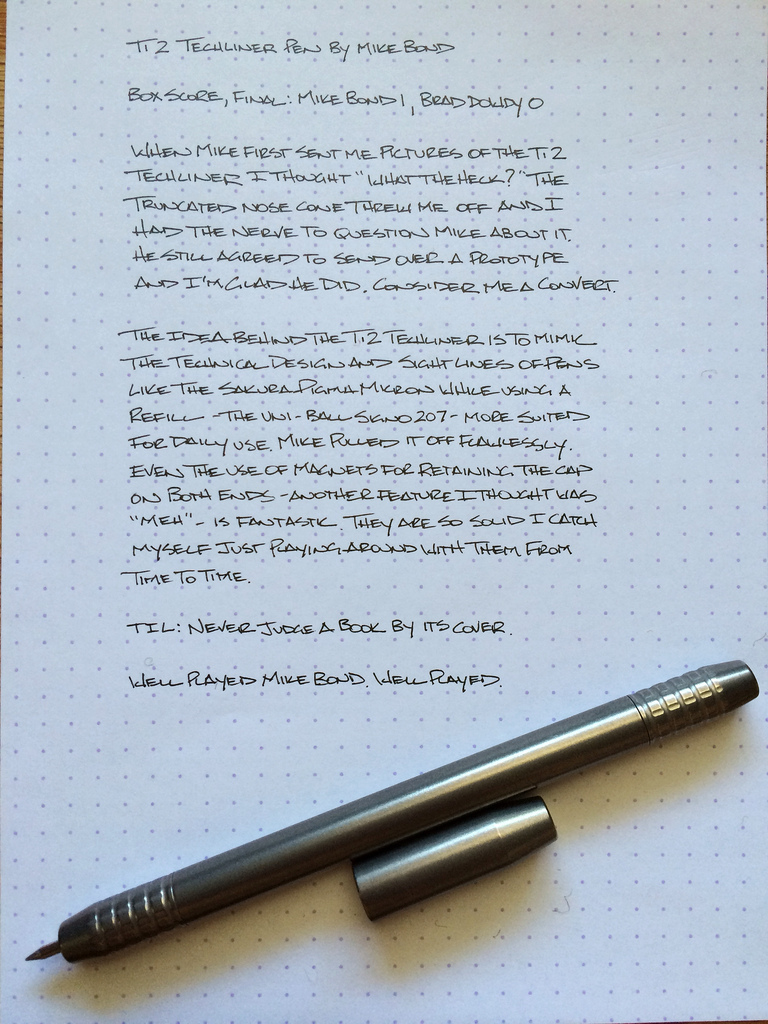 Ti2 TECHLINER PEN BY MIKE BOND
BOX SCORE, FINAL: MIKE BOND 1, BRAD DOWDY 0
WHEN MIKE FIRST SENT ME PICTURES OF THE Ti2
TECHLINER I THOUGHT "WHAT THE HECK?" THE
TRUNCATED NOSE CONE THREW ME OFF AND I
HAD THE NERVE TO QUESTION MIKE ABOUT IT.
HE STILL AGREED TO SEND OVER A PROTOTYPE
AND I'M GLAD HE DID. CONSIDER ME A CONVERT.
THE IDEA BEHIND THE Ti2 TECHLINER IS TO MIMIC
THE TECHNICAL DESIGN AND SIGHT LINES OF PENS
LIKE THE SAKURA PIGMA MICRON WHILE USING A
REFILL - THE UNI-BALL SIGNO 207 - MORE SUITED
FOR DAILY USE. MIKE PULLED IT OFF FLAWLESSLY.
EVEN THE USE OF MAGNETS FOR RETAINING THE CAP
ON BOTH ENDS - ANOTHER FEATURE I THOUGHT WAS
"MEH" - IS FANTASTIC. THEY ARE SO SOLID I CATCH
MYSELF JUST PLAYING AROUND WITH THEM FROM
TIME TO TIME.
TIL: NEVER JUDGE A BOOK BY ITS COVER.
WELL PLAYED MIKE BOND. WELL PLAYED.